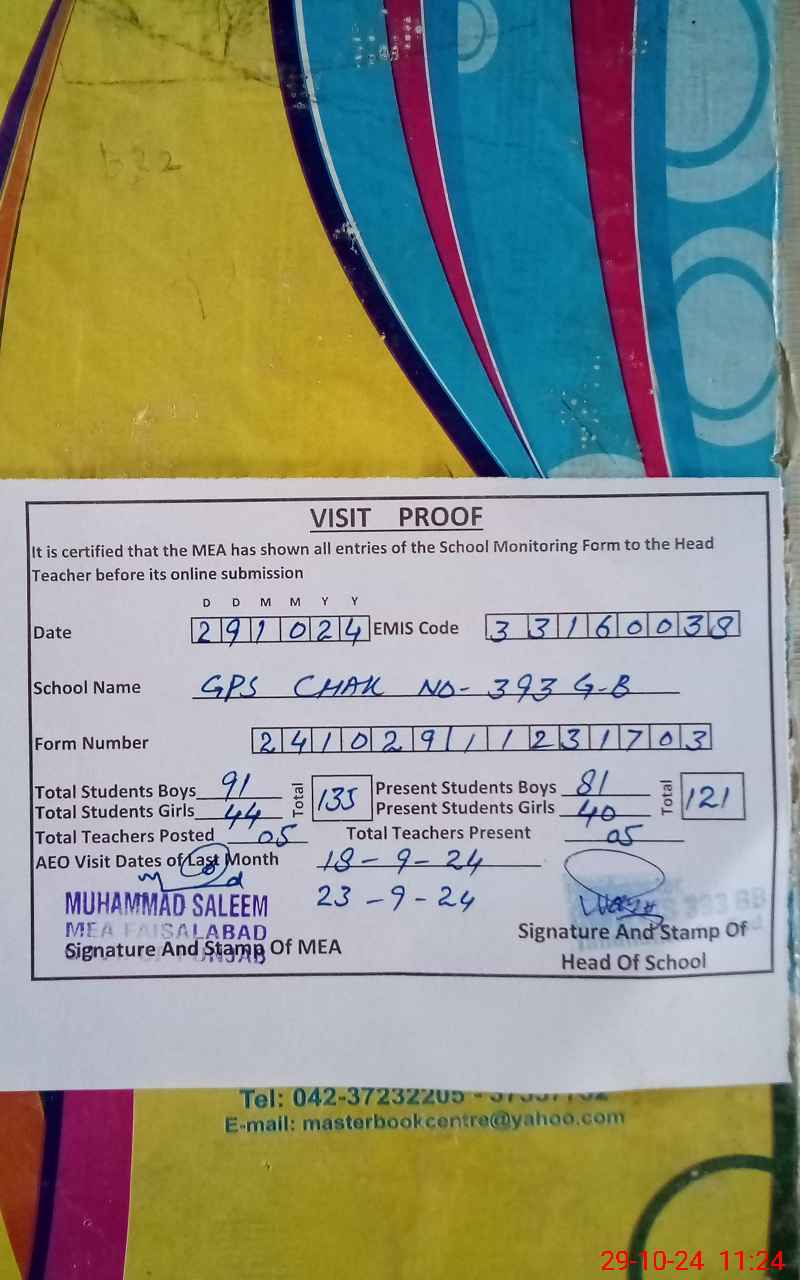 VISIT PROOF
It is certified that the MEA has shown all entries of the School Monitoring Form to the Head
Teacher before its online submission
D D M M Y Y
Date 291024 EMIS Code 33160038
School Name GPS CHAK NO- 393 G-B
Form Number 241029111231703
Total Students Boys 91 Total 135 Present Students Boys 81 Total 121
Total Students Girls 44 Present Students Girls 40
Total Teachers Posted 05 Total Teachers Present 05
AEO Visit Dates of Last Month 18-9-24
23-9-24
MUHAMMAD SALEEM
MEA FAISALABAD
Signature And Stamp Of MEA
Signature And Stamp Of
Head Of School
Tel: 042-37232205 -
E-mail: masterbookcentre@yahoo.com
29-10-24 11:24